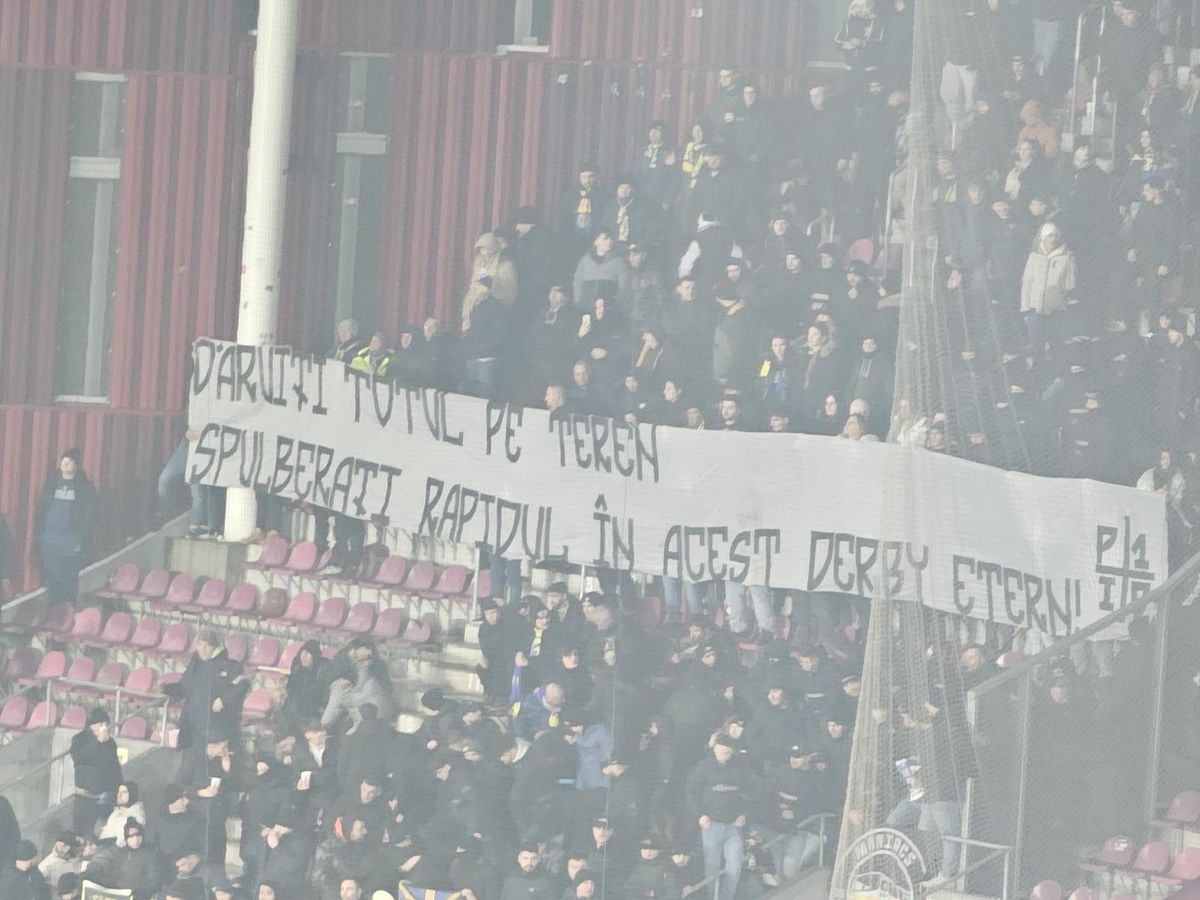 DĂRUIȚI TOTUL PE TEREN
SPULBERAȚI RAPIDUL ÎN ACEST DERBY ETERN!
P 1
MANIACS